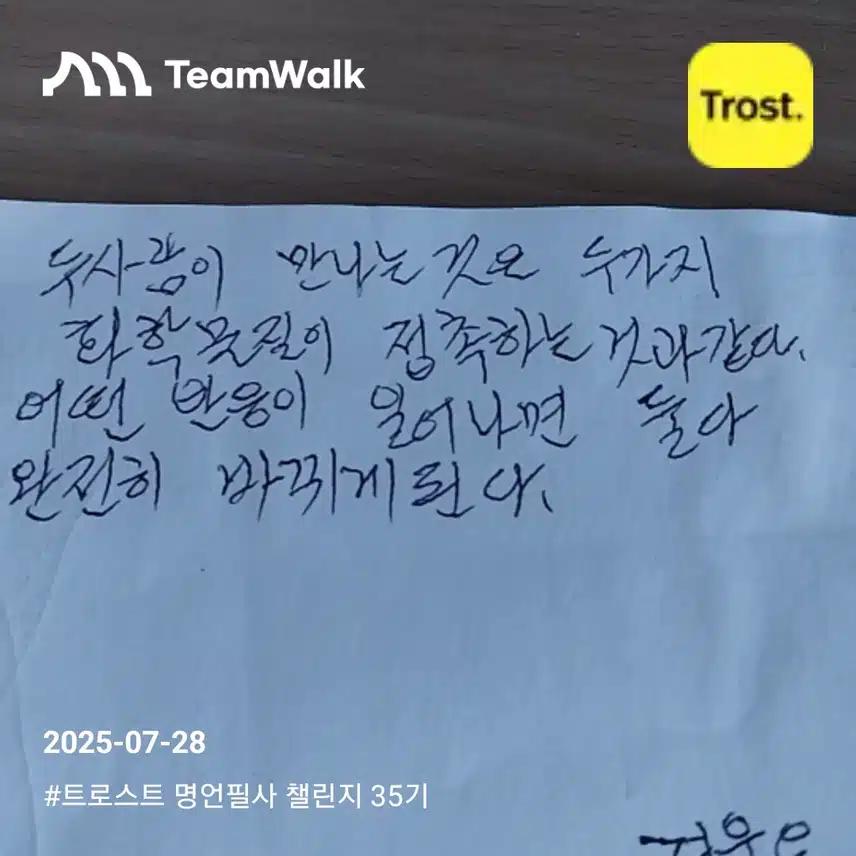 TeamWalk
Trost.
두사람이 만나는것은 두가지
화학물질이 접촉하는것과같다.
어떤 반응이 일어나면 둘다
완전히 바뀌게된다.
2025-07-28
#트로스트 명언필사 챌린지 35기